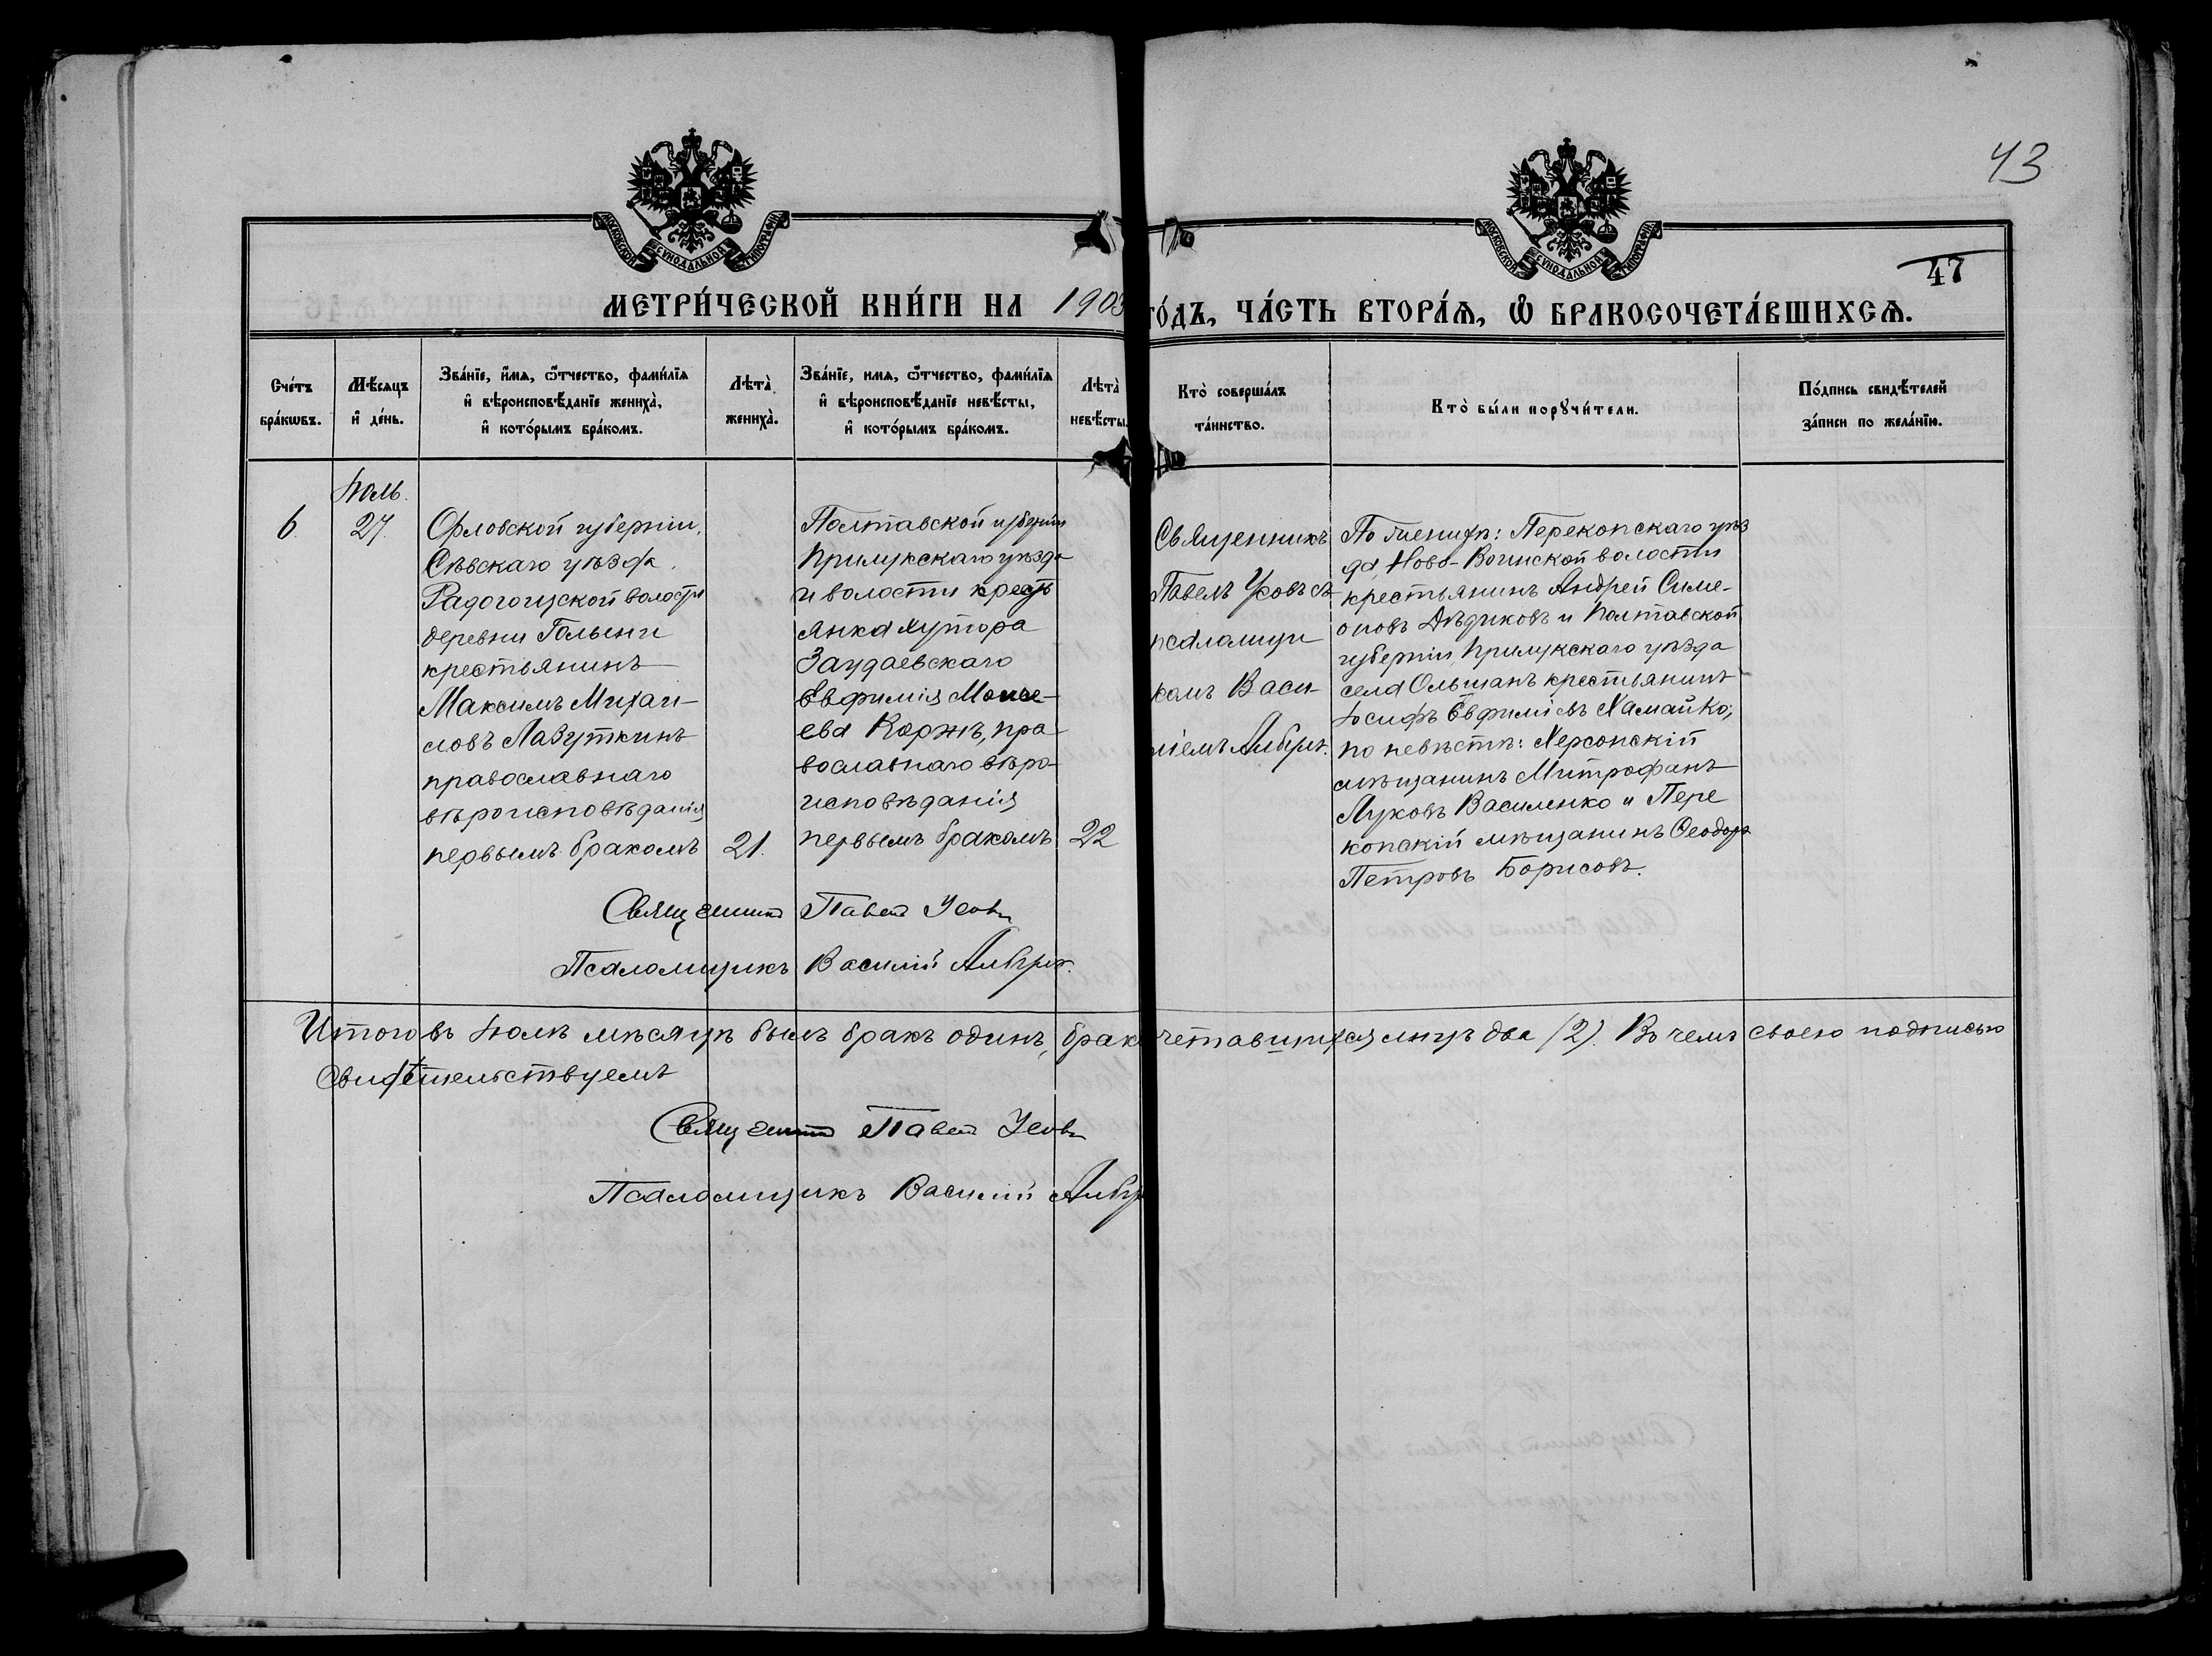 43
МОСКОВСКОЙ СУНОДАЛЬНОЙ ТИПОГРАФІИ
МОСКОВСКОЙ СУНОДАЛЬНОЙ ТИПОГРАФІИ
47
МЕТРИ́ЧЕСКОЙ КНИ́ГИ НА 1903 ГО́ДЪ, ЧА́СТЬ ВТОРА́Ѧ, Ѡ҆ БРАКОСОЧЕТА́ВШИХСѦ.
Сче́тъ
бра́кѡвъ.
Мѣ́сѧцъ
и҆ де́нь.
Зва́нїе, и҆́мѧ, ѻ҆́тчество, фамѝлїѧ
и҆ вѣроисповѣ́данїе жениха̀,
и҆ кото́рымъ бра́комъ.
Лѣта̀
жениха̀.
Зва́нїе, имѧ, ѻ҆́тчество, фамѝлїѧ
и҆ вѣроисповѣ́данїе невѣ́сты,
и҆ кото́рымъ бра́комъ.
Лѣта̀
невѣ́сты.
Кто̀ соверша́лъ
та́инство.
Кто̀ бы́ли порꙋчи́тели.
По́дпись свидѣ́телей
за́писи по жела́нїю.
Іюль.
6. 27.
Орловской губерніи,
Сѣвскаго уѣзда,
Радогощской волости
деревни Голыни
крестьянинъ
Максимъ Михаи-
ловъ Лазуткинъ
православнаго
вѣроисповѣданія
первымъ бракомъ
21.
Полтавской губерніи
Прилукскаго уѣзда
и волости крестъ
янка хутора
Заудаевскаго
Евфимія Моисе-
ева Коржъ, пра-
вославнаго вѣро-
исповѣданія
первымъ бракомъ
22
Священникъ
Павелъ Усовъ съ
псаломщи
комъ Васи-
ліемъ
По женихѣ: Перекопскаго уѣз
да, Ново-Воинской волости
крестьянинъ Андрей Симе-
оновъ Дѣдиковъ и Полтавской
губерніи, Прилукскаго уѣзда
села Ольшанъ крестьянинъ
Іосифъ Евфиміевъ Хамайко;
по невѣстѣ: Херсонскій
мѣщанинъ Митрофанъ
Луковъ Василенко и Пере
копскій мѣщанинъ Ѳеодоръ
Петровъ Борисовъ.
Священникъ Павелъ Усовъ
Псаломщикъ Василій
Итого въ Іюлѣ мѣсяцѣ былъ бракъ одинъ, брак четавшихся лицъ два (2). Въ чемъ своею подписью
свидѣтельствуемъ
Священникъ Павелъ Усовъ
Псаломщикъ Василій